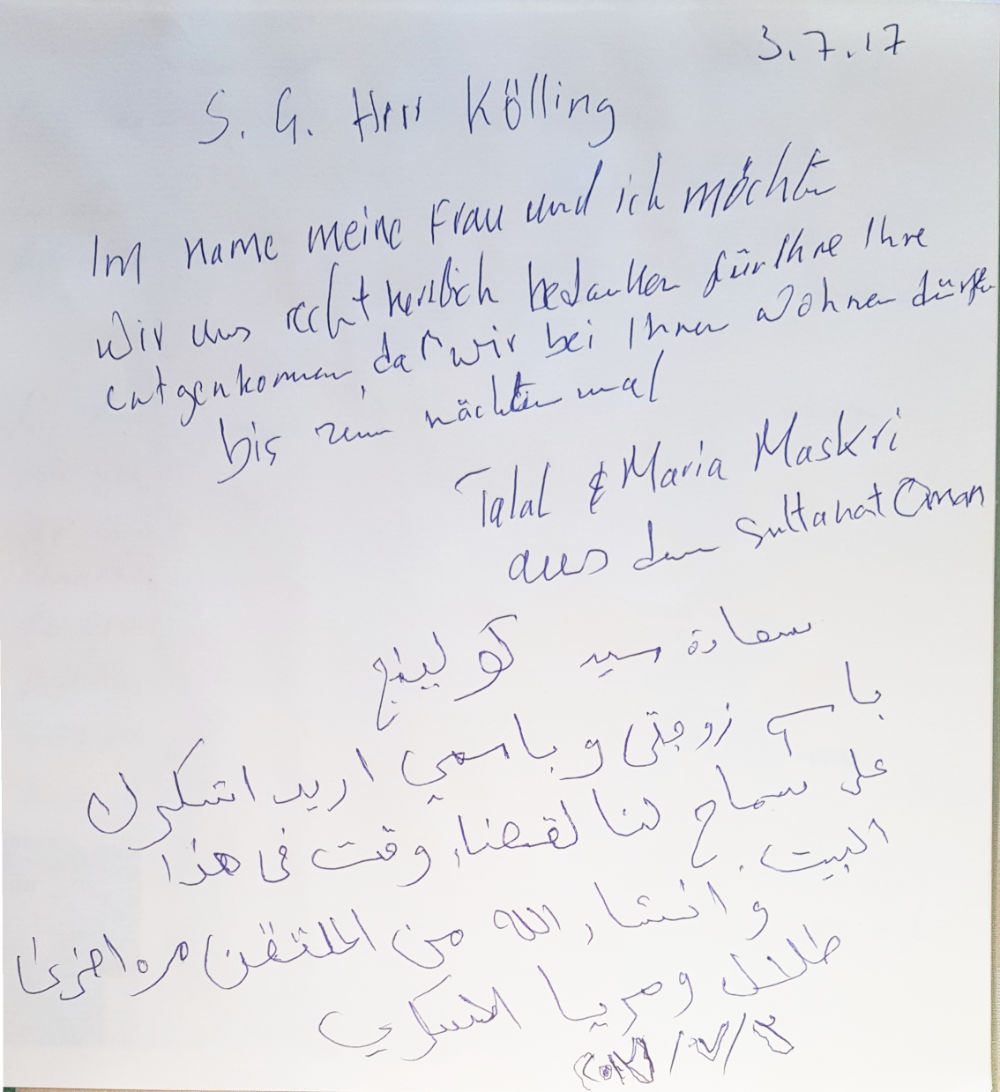 3.7.17
S. G. Herr Kölling
Im name meine Frau und ich möchte
wir uns recht herzlich bedanken für Ihre Ihre
entgenkommen, daß wir bei Ihnen Wohnen dürfen
bis zum nächten mal
Talal & Maria Maskri
aus dem Sultanat Oman
سعادة سيد كولينج
باسم زوجتي وباسمي اريد اشكرك
على سماح لنا لقضاء وقت في هذا
البيت.
وانشاء الله من الملتقن مره اخرى
طلال ومريا المسكري
٢٠١٧/٧/٣